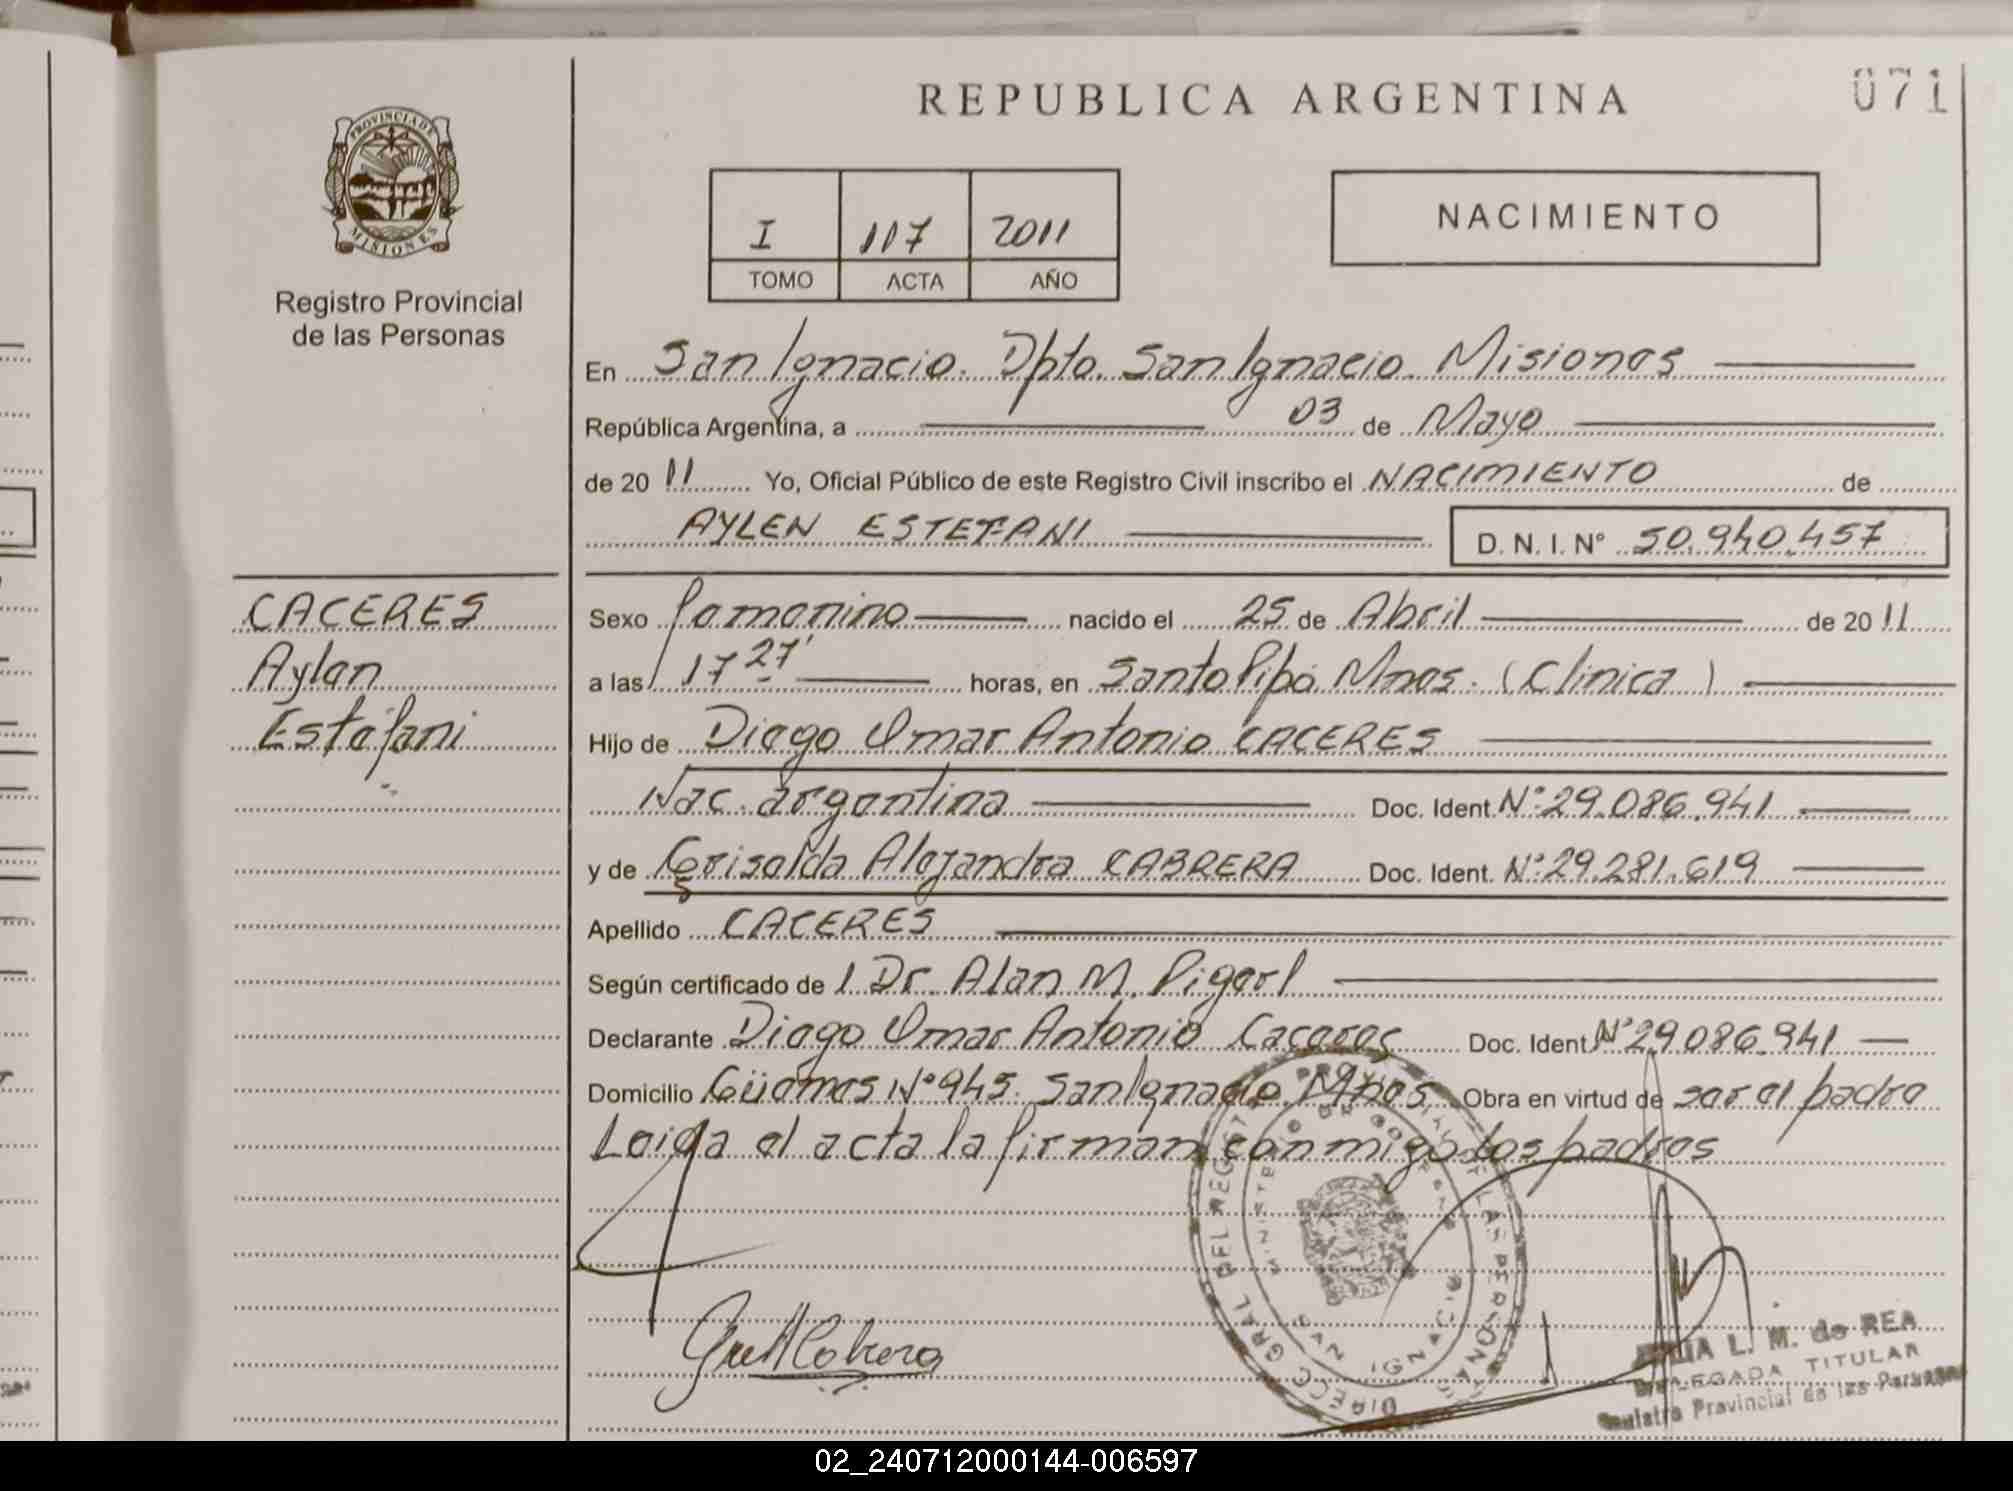 REPUBLICA ARGENTINA
071
PROVINCIA DE
MISIONES
Registro Provincial
de las Personas
I 117 2011
TOMO ACTA AÑO
NACIMIENTO
En San Ignacio. Dpto. San Ignacio. Misiones
República Argentina, a 03 de Mayo
de 20 11 Yo, Oficial Público de este Registro Civil inscribo el NACIMIENTO de
AYLEN ESTEFANI D. N. I. Nº 50.940.457
CACERES
Aylen
Estefani
Sexo femenino nacido el 25 de Abril de 20 11
a las 17 27' horas, en Santo Pipó Mnes. (Clinica)
Hijo de Diego Omar Antonio CACERES
Nac. argentina Doc. Ident. Nº 29.086.941
y de Griselda Alejandra CABRERA Doc. Ident. Nº 29.281.619
Apellido CACERES
Según certificado de l Dr. Alan M. Pigerl
Declarante Diego Omar Antonio Caceres Doc. Ident. Nº 29.086.941
Domicilio Güemes Nº 945. San Ignacio. Mnes Obra en virtud de ser el padre
Leida el acta la firman conmigo los padres
DIRECC GRAL DEL REGISTRO PROVINCIAL DE LAS PERSONAS
MINISTERIO DE GOBIERNO
SAN IGNACIO
L. M. de REA
DELEGADA TITULAR
Registro Provincial de las Personas
02_240712000144-006597